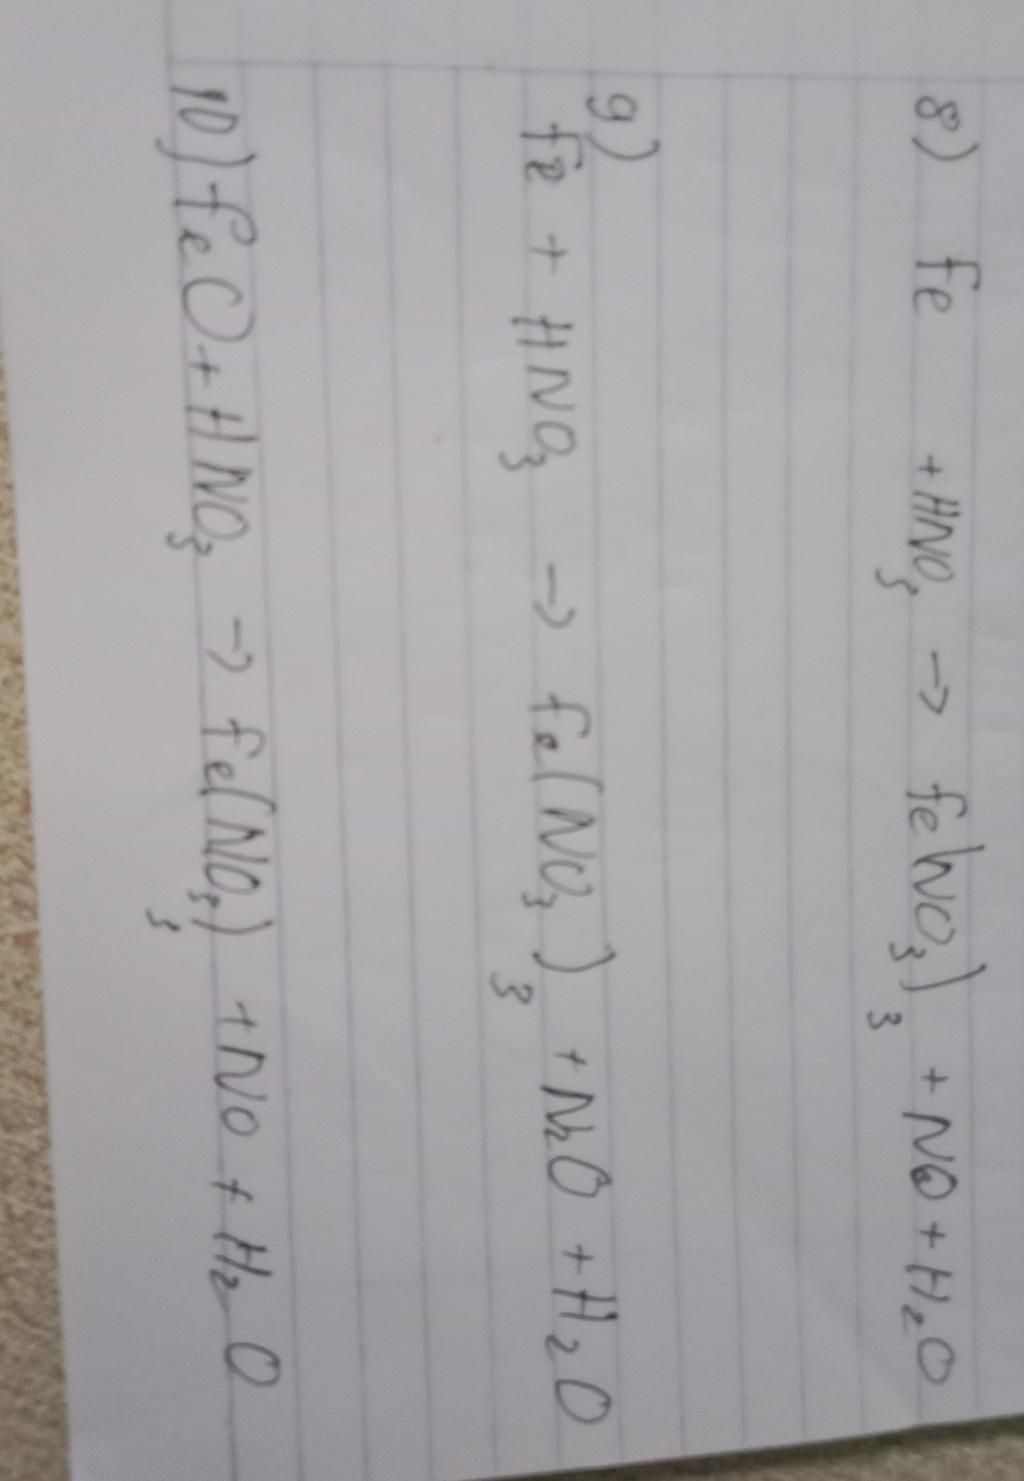 8) Fe + HNO₃ → Fe(NO₃)₃ + NO + H₂O
9)
Fe + HNO₃ → Fe(NO₃)₃ + N₂O + H₂O
10) FeO + HNO₃ → Fe(NO₃)₃ + NO + H₂O